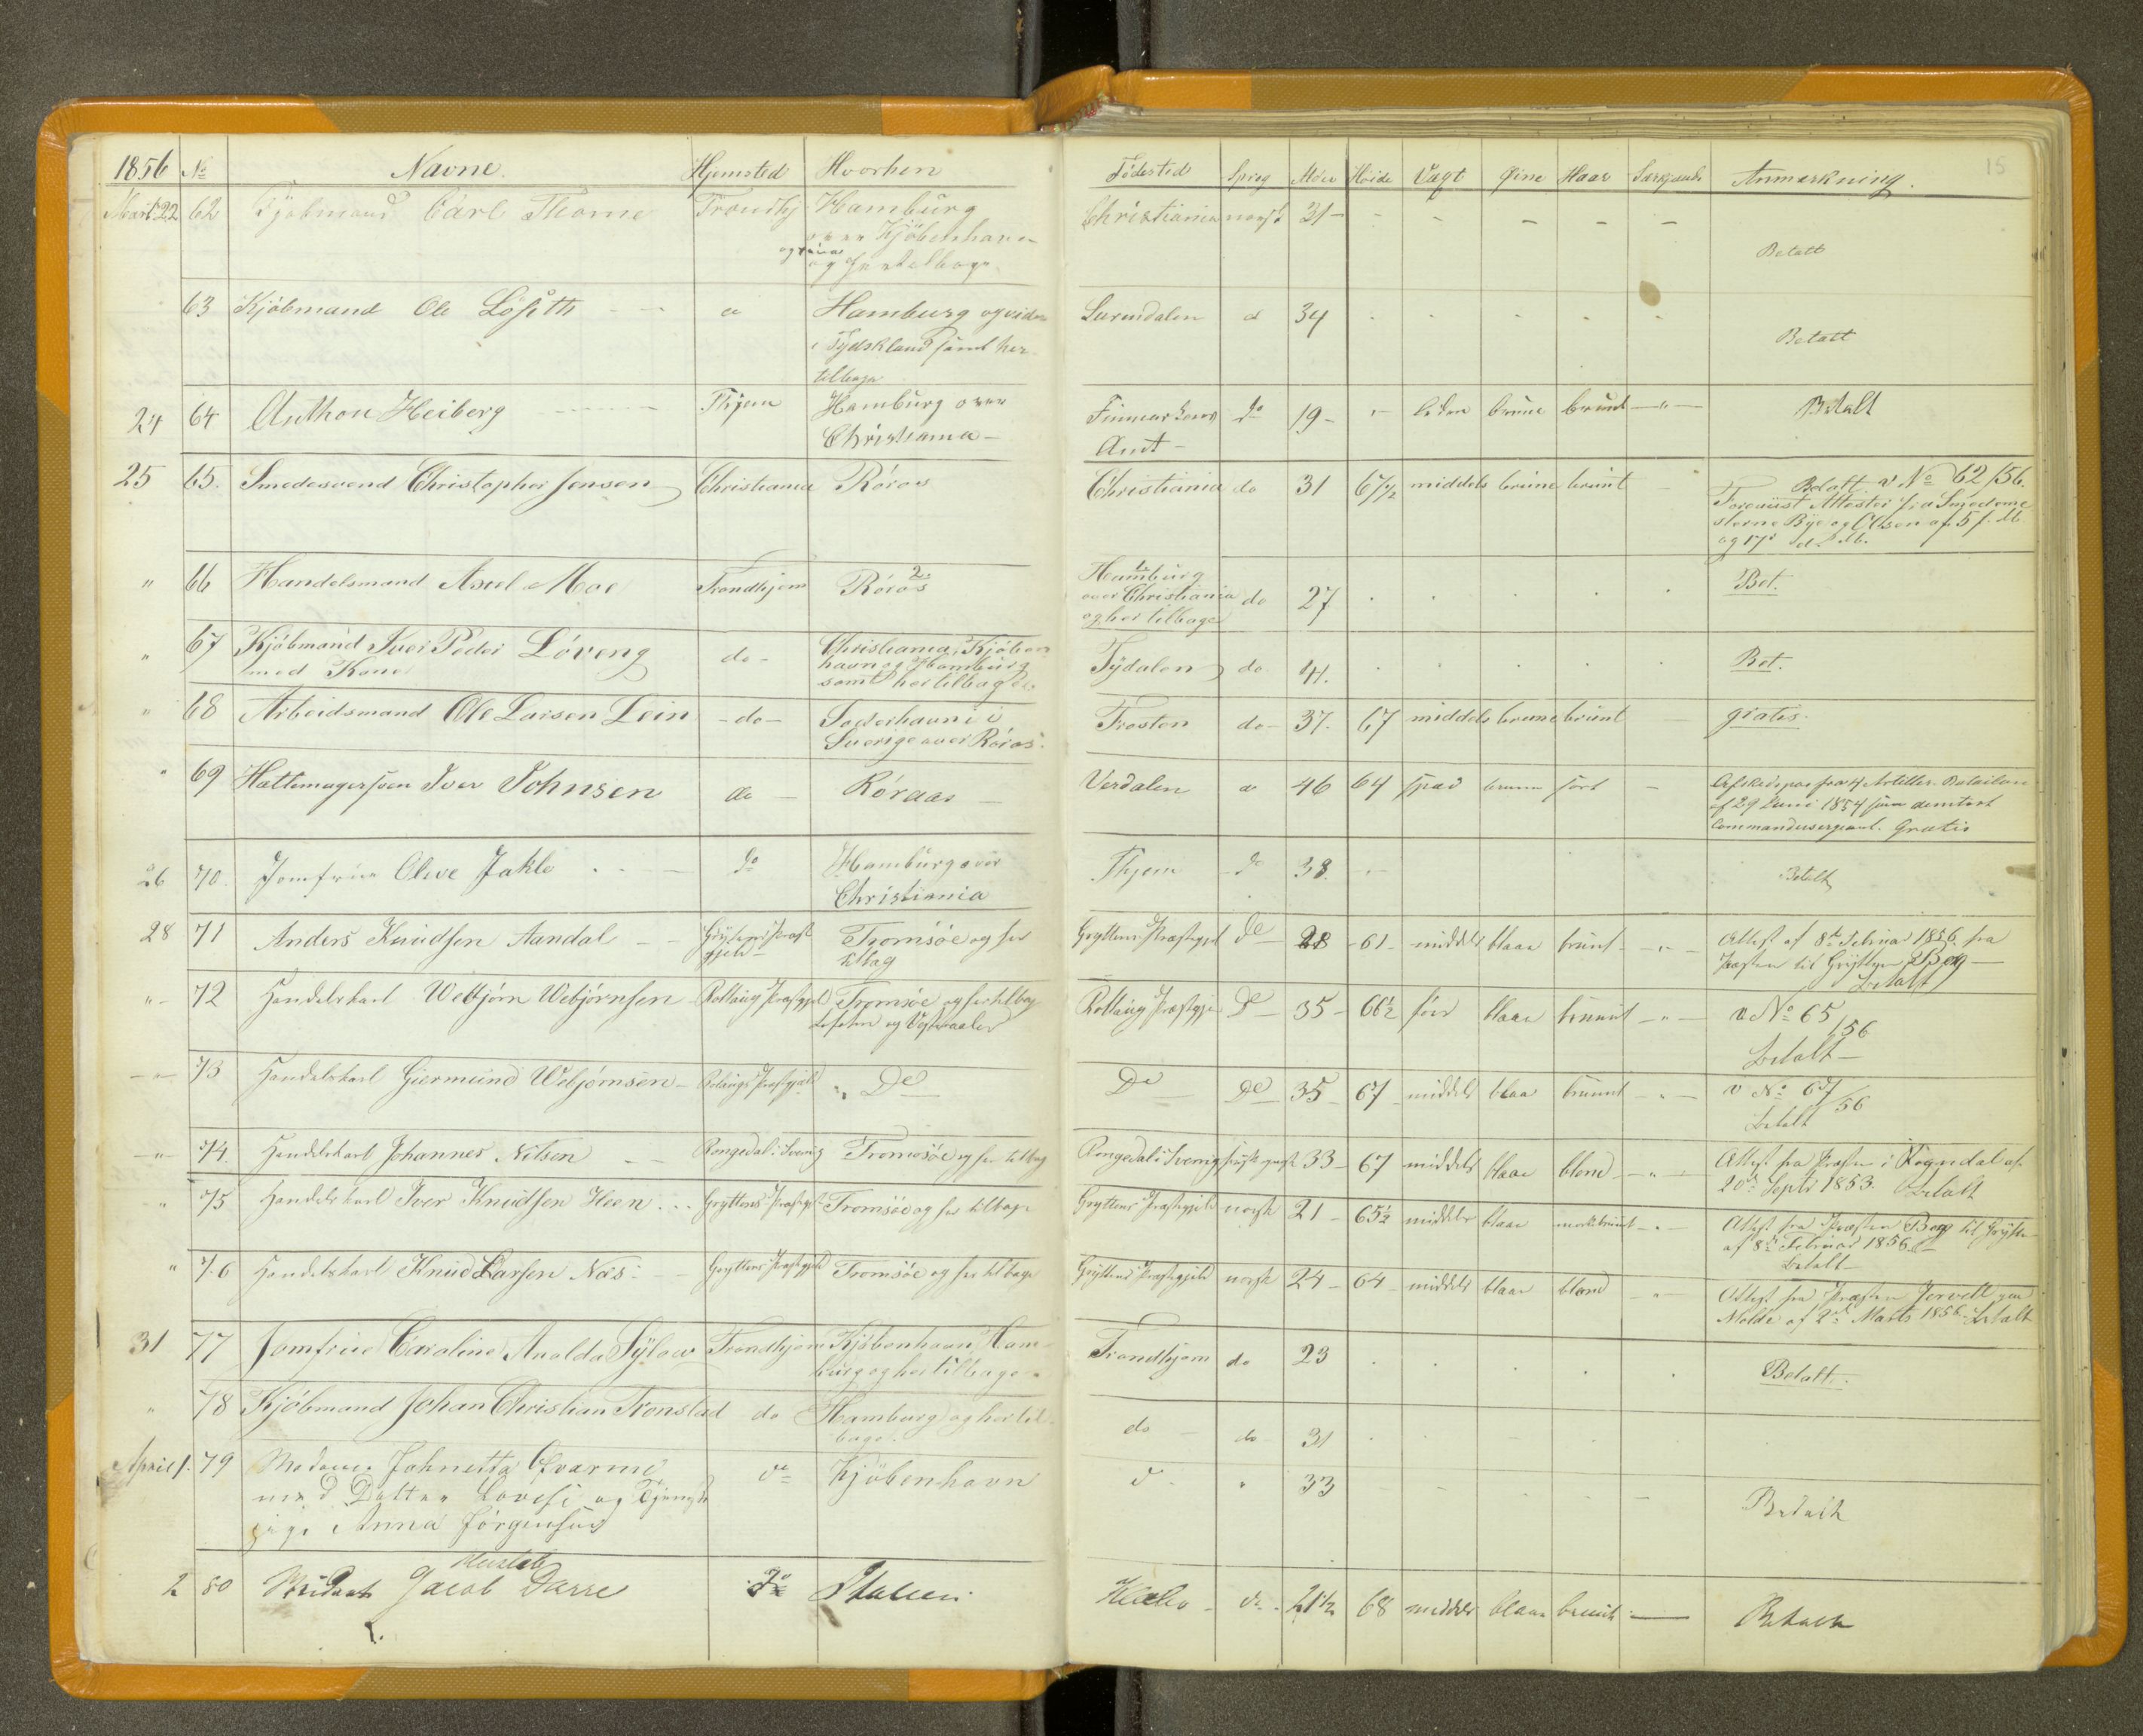 1856 No Navne. Hjemsted Hvorhen
Marts 22 62 Kjøbmand Carl Thonie Trondhj Hamburg
over Kjöbenhavn
og
og hertilbage
63 Kjöbmand Ole Löfseth " Hamburg og videre
i Tydskland samt her-
tilbage
24 64 Anthon Heiberg Thjem Hamburg over
Christiania
25 65. Smedesvend Christopher Jensen Christiania Röros
" 66 Handelsmand Axel Moe Trondhjem Röros 2.
" 67 Kjöbmand Iver Peder Löveng do- Christiania, Kjöben-
med Kone havn og Hamburg
samt hertilbage
" 68 Arbeidsmand Ole Larsen Lein -do-
Sverige over Röros.
" 69 Hattemagersven Iver Johnsen do - Röraas -
26 70. Jomfrue Olive Jakle do Hamburg over
Christiania
28 71 Anders Knudsen Aandal Gryttens Præste Tromsöe og her
gjeld tilbag
"- 72 Handelskarl Webjörn Webjörnsen Præstegjeld Tromsöe og hertilbag
Lofoten og Vesteraalen
-"- 73 Handelskarl Giermund Webjörnsen - Præstegjeld " Do
-"- 74. Handelskarl Johannes Nilsen Rongedal i Sverig Tromsöe og her tilbag
" 75 Handelskarl Iver Knudsen Heen Gryttens Præstegj Tromsöe og her tilbage
" 76 Handelskarl Knud Larsen Næs Gryttens Præstegjeld Tromsöe og her tilbage
31 77 Jomfrue Caroline Analda Sylow Trondhjem Kjöbenhavn, Ham-
burg og hertilbage
" 78 Kjöbmand Johan Christian Tronstad do Hamburg og hertil-
bage.
April 1. 79 Madame Johnetta do Kjöbenhavn
med Datter Lovise og Tjeneste
pige Anna Jörgensen
2 80 Jacob Darre do Italien.
Födested Sprog Alder Höide Vægt Øine Haar Særkjende Anmærkning. 15
Christiania norsk 31 - - - - - -
Betalt
Surendalen " 34
Betalt
Finmarkens do 19 - "- liden brune brunt -"- Betalt
Amt -
Christiania do 31 67½ middels brune brunt - Betalt v No 62/56.
Forevist Attester fra Smedeme
sterne Bye og Olsen af 5 f. M.
og 17de d. M.
1. Hamburg
over Christiania do 27 Bet.
og her tilbage
Tydalen do 41. Bet.
Frosten do- 37. 67 middels brune brunt - gratis.
Verdalen " 46 64 spæd brune sort - Afskedspas fra Artilleri Batailon
af 29 Juni 1854 som
Commandersergeant. Gratis
Thjem do 38. "- Betalt
Gryttens Præstegjeld do 28 - 61 - middels blaa brunt -"- Attest af 8de Februar 1856 fra
Præsten til Grytten Berg -
Betalt
Præstegjeld Do - 35 - 66½ för blaa brunt -"- v No 65/56
Betalt -
Do Do - 35 - 67 - middels blaa brunt -"- v No 67/56
Betalt
Rongedal i Sverig 33 - 67 middels blaa blond -"- Attest fra Præsten i Rogndal af
20de Septr 1853. Betalt
Gryttens Præstegjeld norsk 21 - 65½ middels blaa mørkbrunt -"- Attest fra Præsten Berg til Grytten
af 8de Februar 1856
Betalt
Gryttens Præstegjeld norsk 24 - 64 - middels blaa blond -"- Attest fra Præsten Jervell
Molde af 2den Marts 1856 Betalt
Trondhjem do 23 Betalt.
do - do 31
do " 33 Betalt
do 21½ 68 middels blaa brunt - Betalt